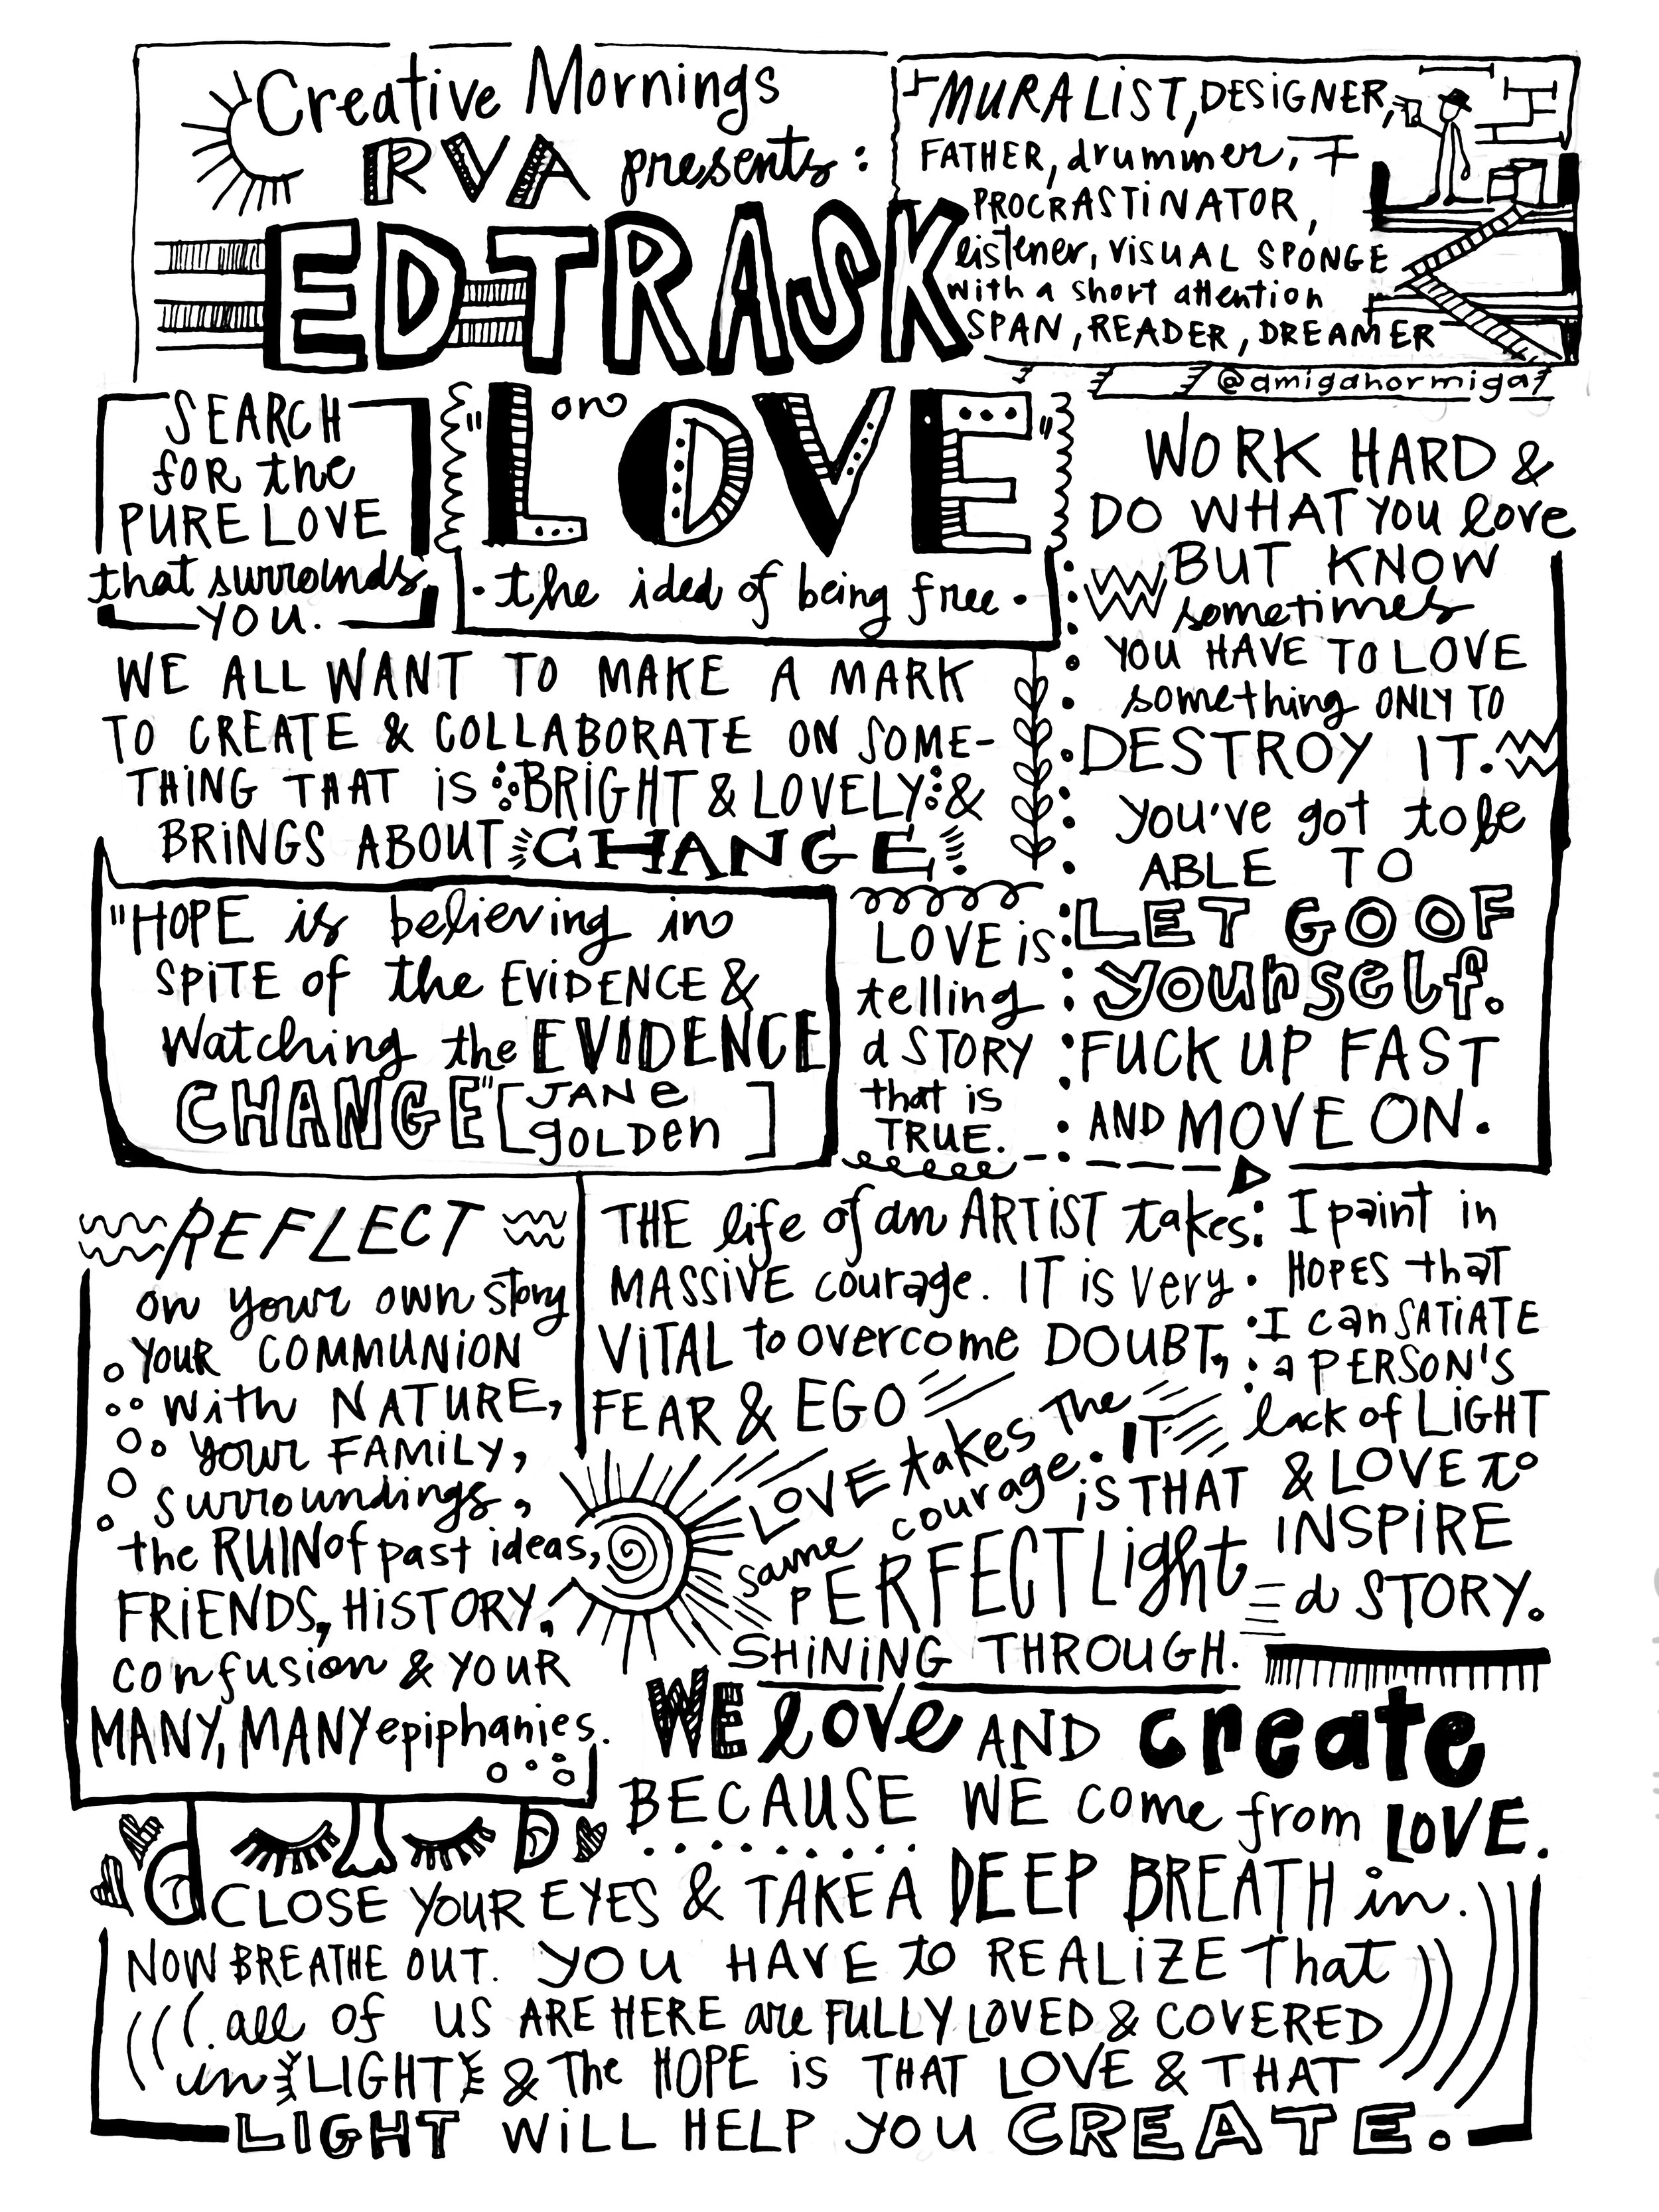 Creative Mornings
RVA presents:
ED TRASK
MURALIST, DESIGNER,
FATHER, drummer, +
PROCRASTINATOR,
listener, VISUAL SPONGE
with a short attention
SPAN, READER, DREAMER
@amigahormiga
on
"LOVE"
• the idea of being free •
SEARCH
for the
PURE LOVE
that surrounds
YOU.
WORK HARD &
DO WHAT YOU love
BUT KNOW
sometimes
YOU HAVE TO LOVE
something ONLY TO
DESTROY IT.
you've got to be
ABLE TO
LET GO OF
yourself.
FUCK UP FAST
AND MOVE ON.
WE ALL WANT TO MAKE A MARK
TO CREATE & COLLABORATE ON SOME-
THING THAT IS BRIGHT & LOVELY &
BRINGS ABOUT CHANGE.
"HOPE is believing in
SPITE of the EVIDENCE &
Watching the EVIDENCE
CHANGE" [JANE
GOLDEN]
LOVE is
telling
a STORY
that is
TRUE.
REFLECT
on your own story
YOUR COMMUNION
with NATURE,
your FAMILY,
surroundings,
the RUIN of past ideas,
FRIENDS, HISTORY,
confusion & YOUR
MANY, MANY epiphanies.
THE life of an ARTIST takes
MASSIVE courage. IT is very
VITAL to overcome DOUBT,
FEAR & EGO
LOVE takes The
same courage. IT
is THAT
PERFECT Light
SHINING THROUGH.
I paint in
HOPES that
I can SATIATE
a PERSON'S
lack of LIGHT
& LOVE to
INSPIRE
a STORY.
WE love AND create
BECAUSE WE come from LOVE.
CLOSE YOUR EYES & TAKE A DEEP BREATH in.
NOW BREATHE OUT. YOU HAVE to REALIZE that
all of US ARE HERE are FULLY LOVED & COVERED
in LIGHT & The HOPE is THAT LOVE & THAT
LIGHT WILL HELP YOU CREATE.